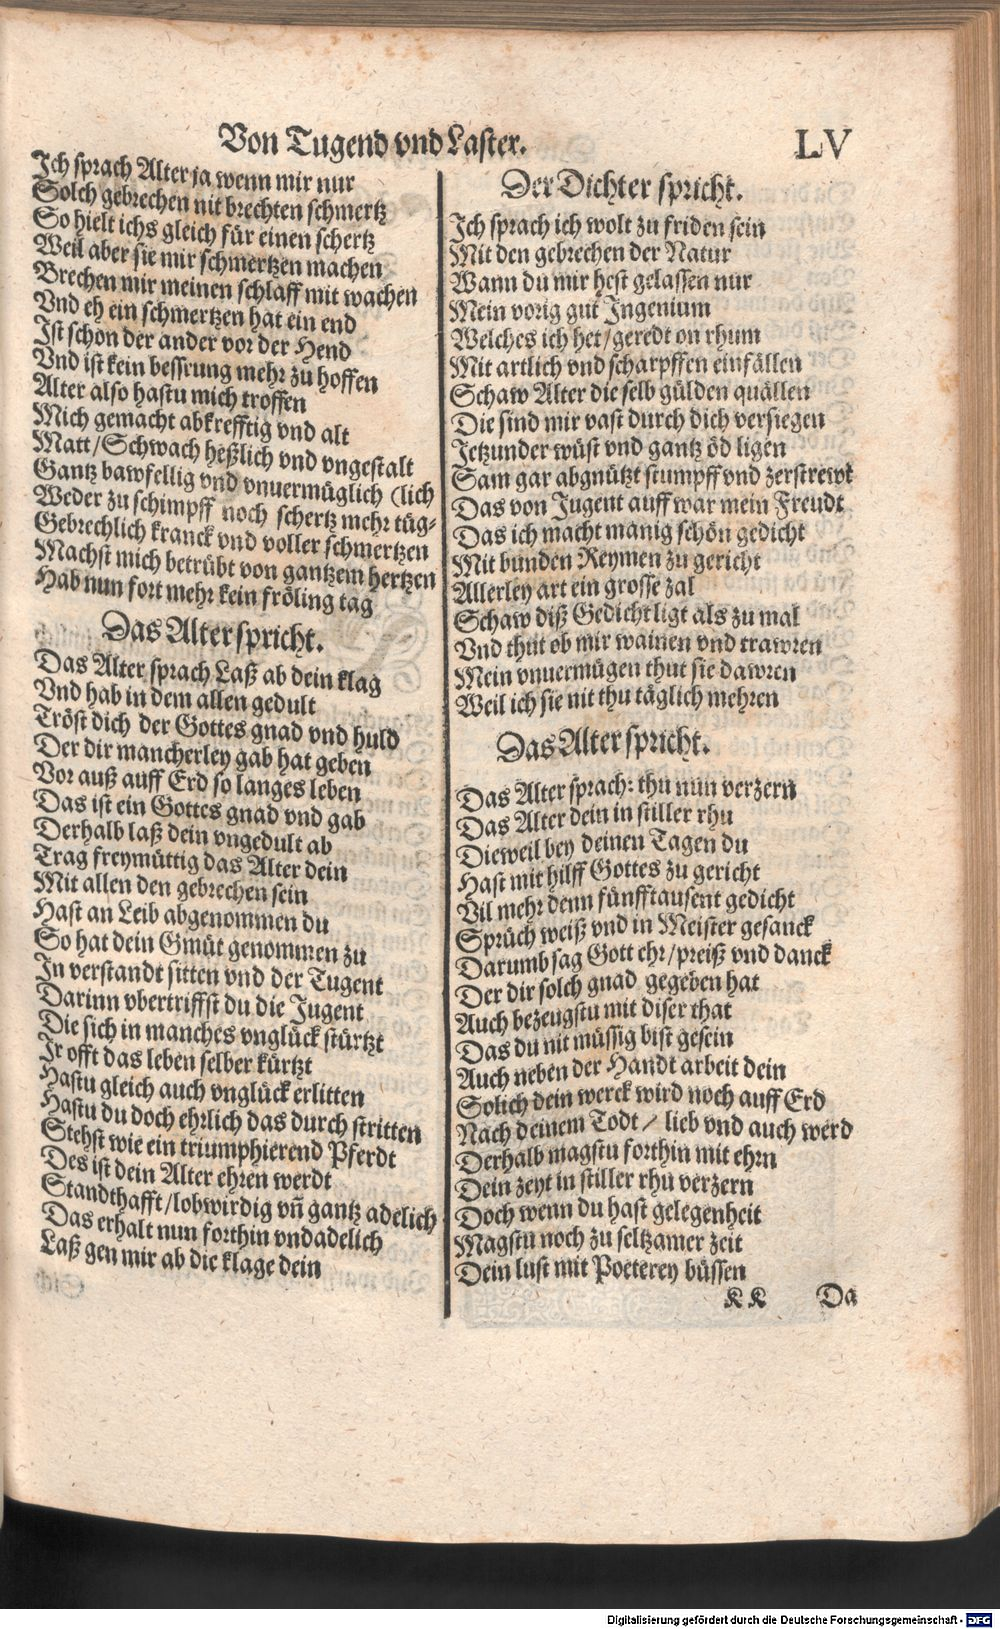 Von Tugend vnd Laster.
LV
Ich sprach Alter ja wenn mir nur
Solch gebrechen nit brechten schmertz
So hielt ichs gleich für einen schertz
Weil aber sie mir schmertzen machen
Brechen mir meinen schlaff mit wachen
Vnd eh ein schmertzen hat ein end
Ist schon der ander vor der Hend
Vnd ist kein bessrung mehr zu hoffen
Alter also hastu mich troffen
Mich gemacht abkrefftig vnd alt
Matt/Schwach heßlich vnd vngestalt
Gantz bawfellig vnd vnuermüglich (lich
Weder zu schimpff noch schertz mehr tüg-
Gebrechlich kranck vnd voller schmertzen
Machst mich betrübt von gantzem hertzen
Hab nun fort mehr kein fröling tag
Das Alter spricht.
Das Alter sprach Laß ab dein klag
Vnd hab in dem allen gedult
Tröst dich der Gottes gnad vnd huld
Der dir mancherley gab hat geben
Vor auß auff Erd so langes leben
Das ist ein Gottes gnad vnd gab
Derhalb laß dein vngedult ab
Trag freymüttig das Alter dein
Mit allen den gebrechen sein
Hast an Leib abgenommen du
So hat dein Gmüt genommen zu
In verstandt sitten vnd der Tugent
Darinn vbertriffst du die Jugent
Die sich in manches vnglück stürtzt
Ir offt das leben selber kürtzt
Hastu gleich auch vnglück erlitten
Hastu du doch ehrlich das durch stritten
Stehst wie ein triumphierend Pferdt
Des ist dein Alter ehren werdt
Standthafft/lobwirdig vñ gantz adelich
Das erhalt nun forthin vndadelich
Laß gen mir ab die klage dein
Der Dichter spricht.
Ich sprach ich wolt zu friden sein
Mit den gebrechen der Natur
Wann du mir hest gelassen nur
Mein vorig gut Ingenium
Welches ich het/geredt on rhum
Mit artlich vnd scharpffen einfällen
Schaw Alter die selb gülden quällen
Die sind mir vast durch dich versiegen
Jetzunder wüst vnd gantz öd ligen
Sam gar abgnützt stumpff vnd zerstrewt
Das von Jugent auff war mein Freudt
Das ich macht manig schön gedicht
Mit bunden Reymen zu gericht
Allerley art ein grosse zal
Schaw diß Gedicht ligt als zu mal
Vnd thut ob mir wainen vnd trawren
Mein vnuermügen thut sie dawren
Weil ich sie nit thu täglich mehren
Das Alter spricht.
Das Alter sprach: thu nun verzern
Das Alter dein in stiller rhu
Dieweil bey deinen Tagen du
Hast mit hilff Gottes zu gericht
Vil mehr denn fünfftausent gedicht
Sprüch weiß vnd in Meister gesanck
Darumb sag Gott ehr/preiß vnd danck
Der dir solch gnad gegeben hat
Auch bezeugstu mit diser that
Das du nit müssig bist gesein
Auch neben der Handt arbeit dein
Solich dein werck wird noch auff Erd
Nach deinem Todt/ lieb vnd auch werd
Derhalb magstu forthin mit ehrn
Dein zeyt in stiller rhu verzern
Doch wenn du hast gelegenheit
Magstu noch zu seltzamer zeit
Dein lust mit Poeterey büssen
KK Da
Digitalisierung gefördert durch die Deutsche Forschungsgemeinschaft - DFG